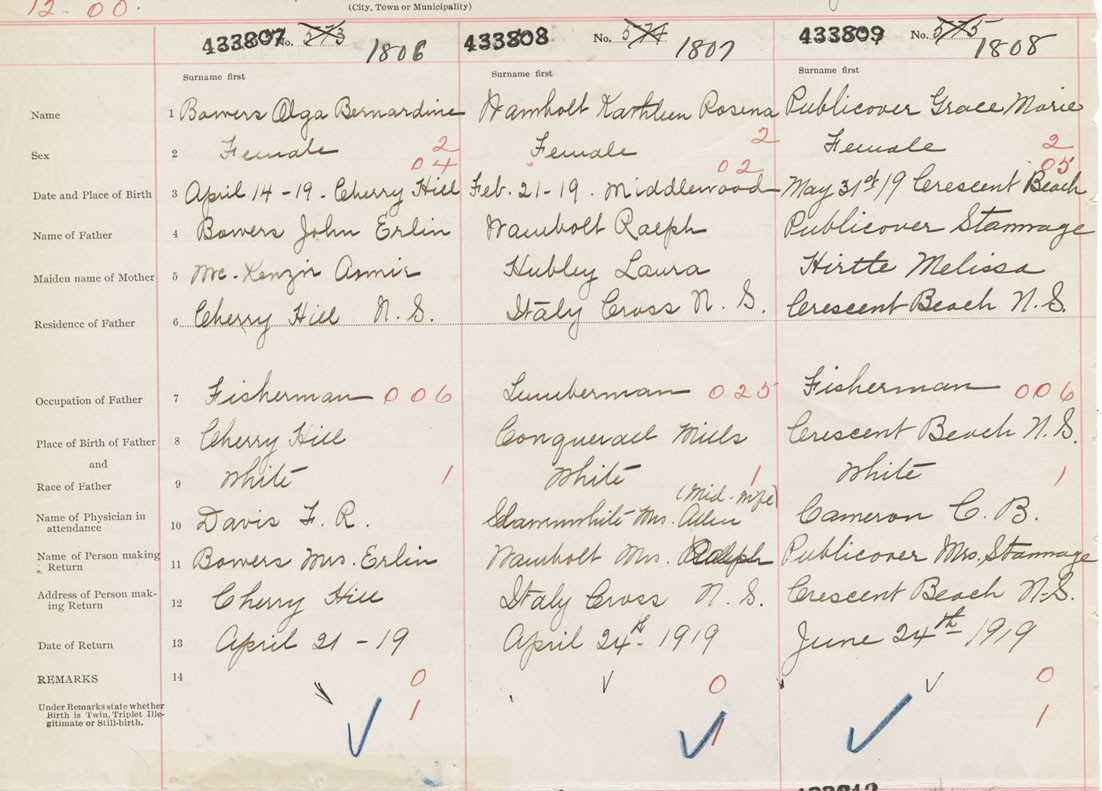 12-00.
(City, Town or Municipality)
433807 No. 573 1806 433808 No. 574 1807 433809 No. 575 1808
Surname first Surname first Surname first
Name 1 Bowers Olga Bernardine Wambolt Kathleen Rosena Publicover Grace Marie
Sex 2 Female 2 Female 2 Female 2
04 02 05
Date and Place of Birth 3 April 14-19. Cherry Hill Feb. 21-19. Middlewood May 31st 19 Crescent Beach
Name of Father 4 Bowers John Erlin Wambolt Ralph Publicover Stannage
Maiden name of Mother 5 Mc.Kenzie Annie Hubley Laura Hirtle Melissa
Residence of Father 6 Cherry Hill N.S. Italy Cross N.S. Crescent Beach N.S.
Occupation of Father 7 Fisherman 006 Lumberman 025 Fisherman 006
Place of Birth of Father 8 Cherry Hill Conquerall Mills Crescent Beach N.S.
and
Race of Father 9 White 1 White 1 White 1
(Mid-wife)
Name of Physician in
attendance 10 Davis F. R. Mrs. Allen Cameron C. B.
Name of Person making
Return 11 Bowers Mrs. Erlin Wambolt Mrs. Ralph Publicover Mrs. Stannage
Address of Person mak-
ing Return 12 Cherry Hill Italy Cross N.S. Crescent Beach N.S.
Date of Return 13 April 21-19 April 24th-1919 June 24th-1919
REMARKS 14 0 0 0
Under Remarks state whether
Birth is Twin, Triplet Ille-
gitimate or Still-birth. 1 1 1